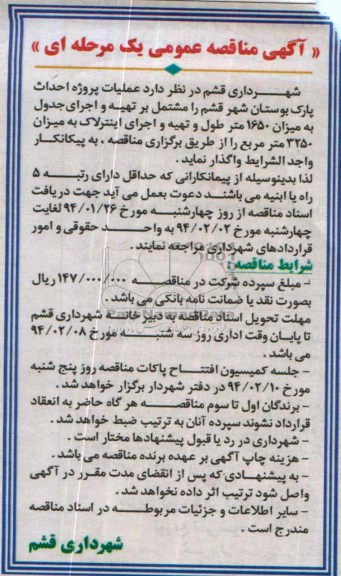 « آگهی مناقصه عمومی یک مرحله ای »
شهرداری قشم در نظر دارد عملیات پروژه احداث
پارک بوستان شهر قشم را مشتمل بر تهیه و اجرای جدول
به میزان ۱۶۵۰ متر طول و تهیه و اجرای اینترلاک به میزان
۳۲۵۰ متر مربع را از طریق برگزاری مناقصه ، به پیکانکار
واجد الشرایط واگذار نماید .
لذا بدینوسیله از پیمانکارانی که حداقل دارای رتبه ۵
راه یا ابنیه می باشند دعوت بعمل می آید جهت دریافت
اسناد مناقصه از روز چهارشنبه مورخ ۹۴/۰۱/۲۶ لغایت
چهارشنبه مورخ ۹۴/۰۲/۰۲ به واحد حقوقی و امور
قراردادهای شهرداری مراجعه نمایند .
شرایط مناقصه:
- مبلغ سپرده شرکت در مناقصه ۱۴۷/۰۰۰/۰۰۰ ریال
بصورت نقد یا ضمانت نامه بانکی می باشد .
مهلت تحویل اسناد مناقصه به دبیر خانه شهرداری قشم
تا پایان وقت اداری روز سه شنبه مورخ ۹۴/۰۲/۰۸
می باشد .
- جلسه کمیسیون افتتاح پاکات مناقصه روز پنج شنبه
مورخ ۹۴/۰۲/۱۰ در دفتر شهردار برگزار خواهد شد .
- برندگان اول تا سوم مناقصه هر گاه حاضر به انعقاد
قرارداد نشوند سپرده آنان به ترتیب ضبط خواهد شد .
- شهرداری در رد یا قبول پیشنهادها مختار است .
- هزینه چاپ آگهی بر عهده برنده مناقصه می باشد .
- به پیشنهادی که پس از انقضای مدت مقرر در آگهی
واصل شود ترتیب اثر داده نخواهد شد .
- سایر اطلاعات و جزئیات مربوطه در اسناد مناقصه
مندرج است .
شهرداری قشم